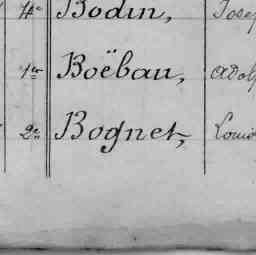 4e Bodin, Josep
1er Boëbau, Adolp
2e Bognet, Louis